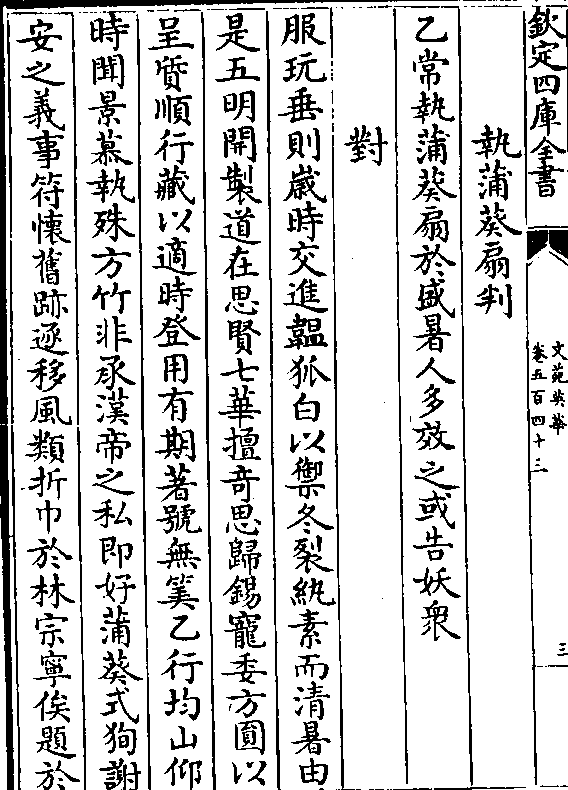 欽定四庫全書
文苑英華
卷五百四十三
三
執蒲葵扇判
乙常執蒲葵扇於盛暑人多效之或告妖衆
對
服玩垂則歳時交進韞狐白以禦冬裂紈素而清暑由
是五明開製道在思賢七華擅奇思歸錫寵委方圓以
呈質順行藏以適時登用有期著號無㷓乙行均山仰
時聞景慕執殊方竹非承漢帝之私即好蒲葵式狥謝
安之義事符懷舊跡逐移風類折巾於林宗寧俟題於